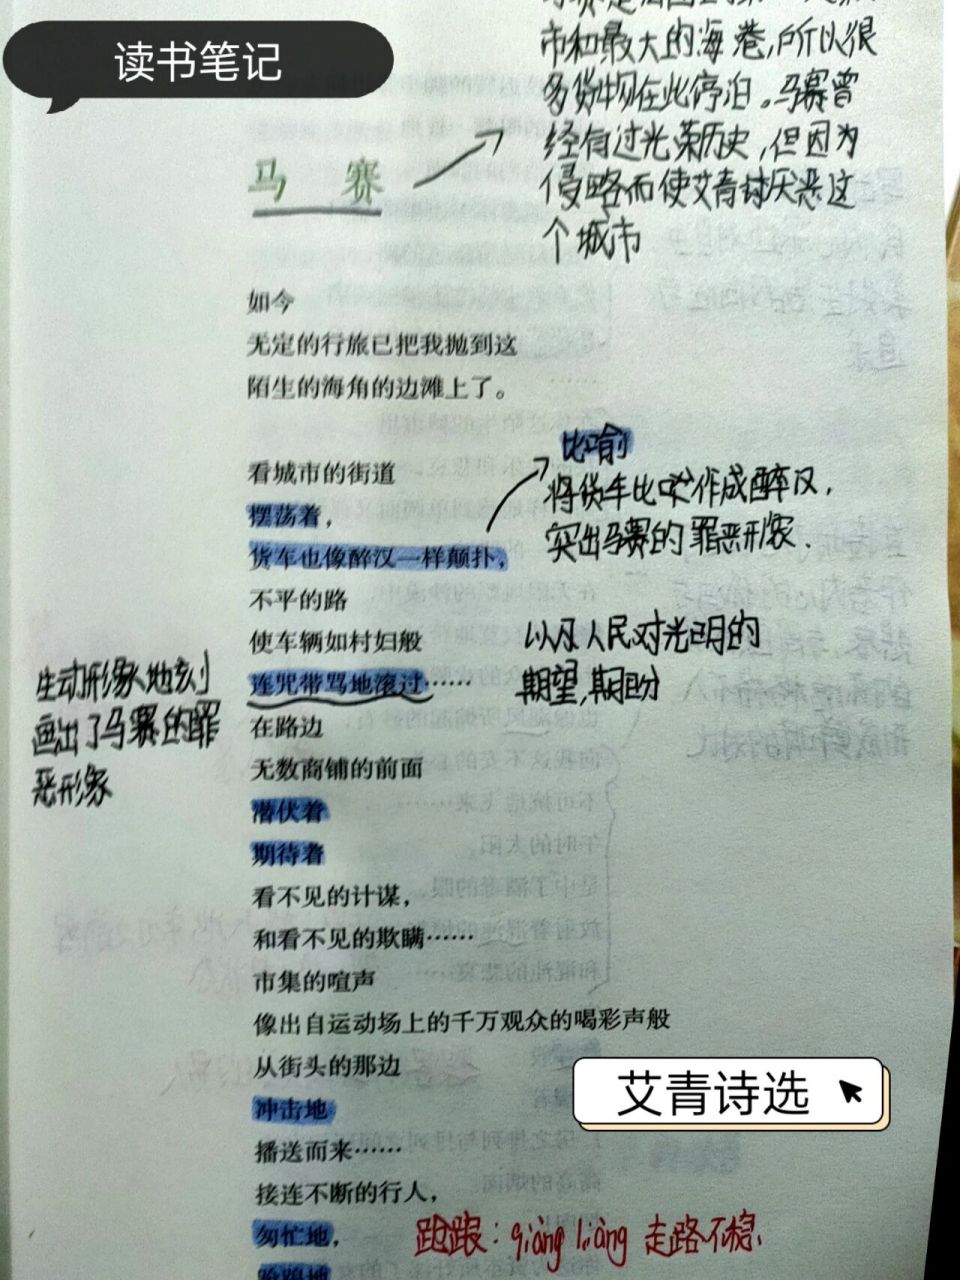 读书笔记
市和最大的海巷,所以很
多货物在此停泊。马赛曾
经有过光荣历史,但因为
侵略而使艾青讨厌恶这
个城市
马 赛
如今
无定的行旅已把我抛到这
陌生的海角的边滩上了。
比喻
看城市的街道
将货车比喻作成醉汉,
摆荡着,
突出马赛的罪恶形象.
货车也像醉汉一样颠扑,
不平的路
使车辆如村妇般
以及人民对光明的
诬咒带骂地滚过……
期望,期盼
生动形象地刻
画出了马赛的罪
恶形象
在路边
无数商铺的前面
潜伏着
期待着
看不见的计谋,
和看不见的欺瞒……
市集的喧声
像出自运动场上的千万观众的喝彩声般
从街头的那边
艾青诗选
冲击地
播送而来……
接连不断的行人,
匆忙地,
踉跄地
qiàng liàng 走路不稳.